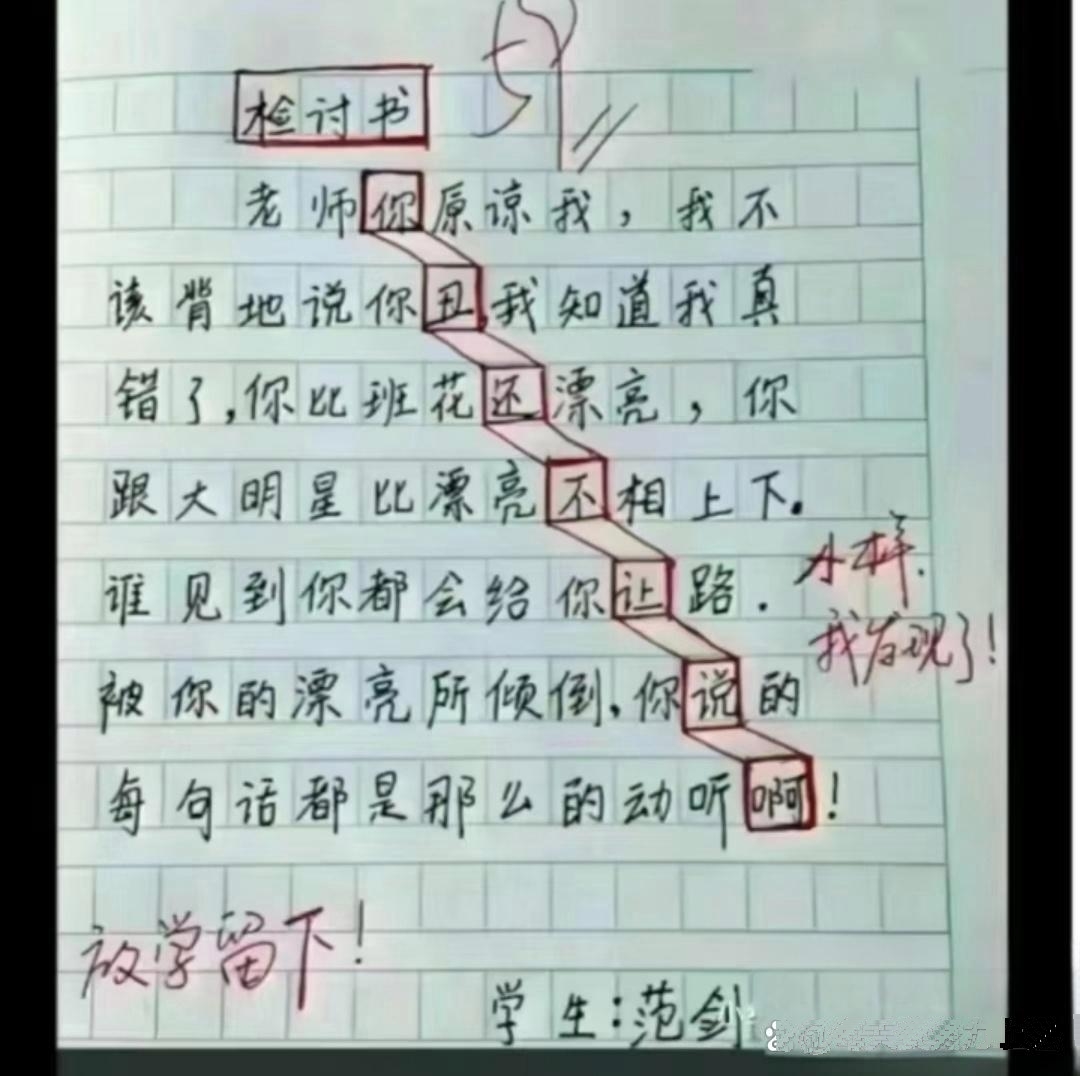 检讨书
老师你原谅我，我不
该背地说你丑，我知道我真
错了，你比班花还漂亮，你
跟大明星比漂亮不相上下。
谁见到你都会给你让路.
被你的漂亮所倾倒、你说的
每句话都是那么的动听啊！
小样.
我发现了！
放学留下！
学生：范剑